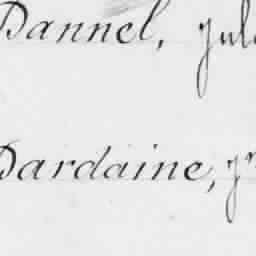 Dannel, Jule
Dardaine, Jn